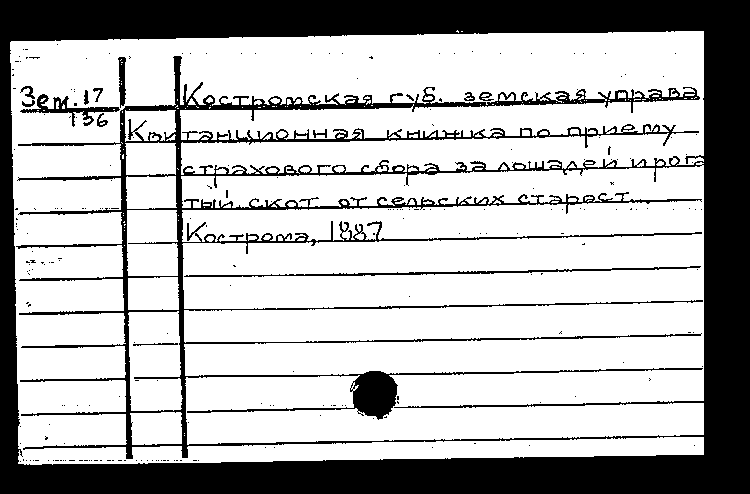 Зем. 17 Костромская губ. земская управа
136
Квитанционная книжка по приему
страхового сбора за лошадей и рога
тый скот от сельских старост.
Кострома, 1887